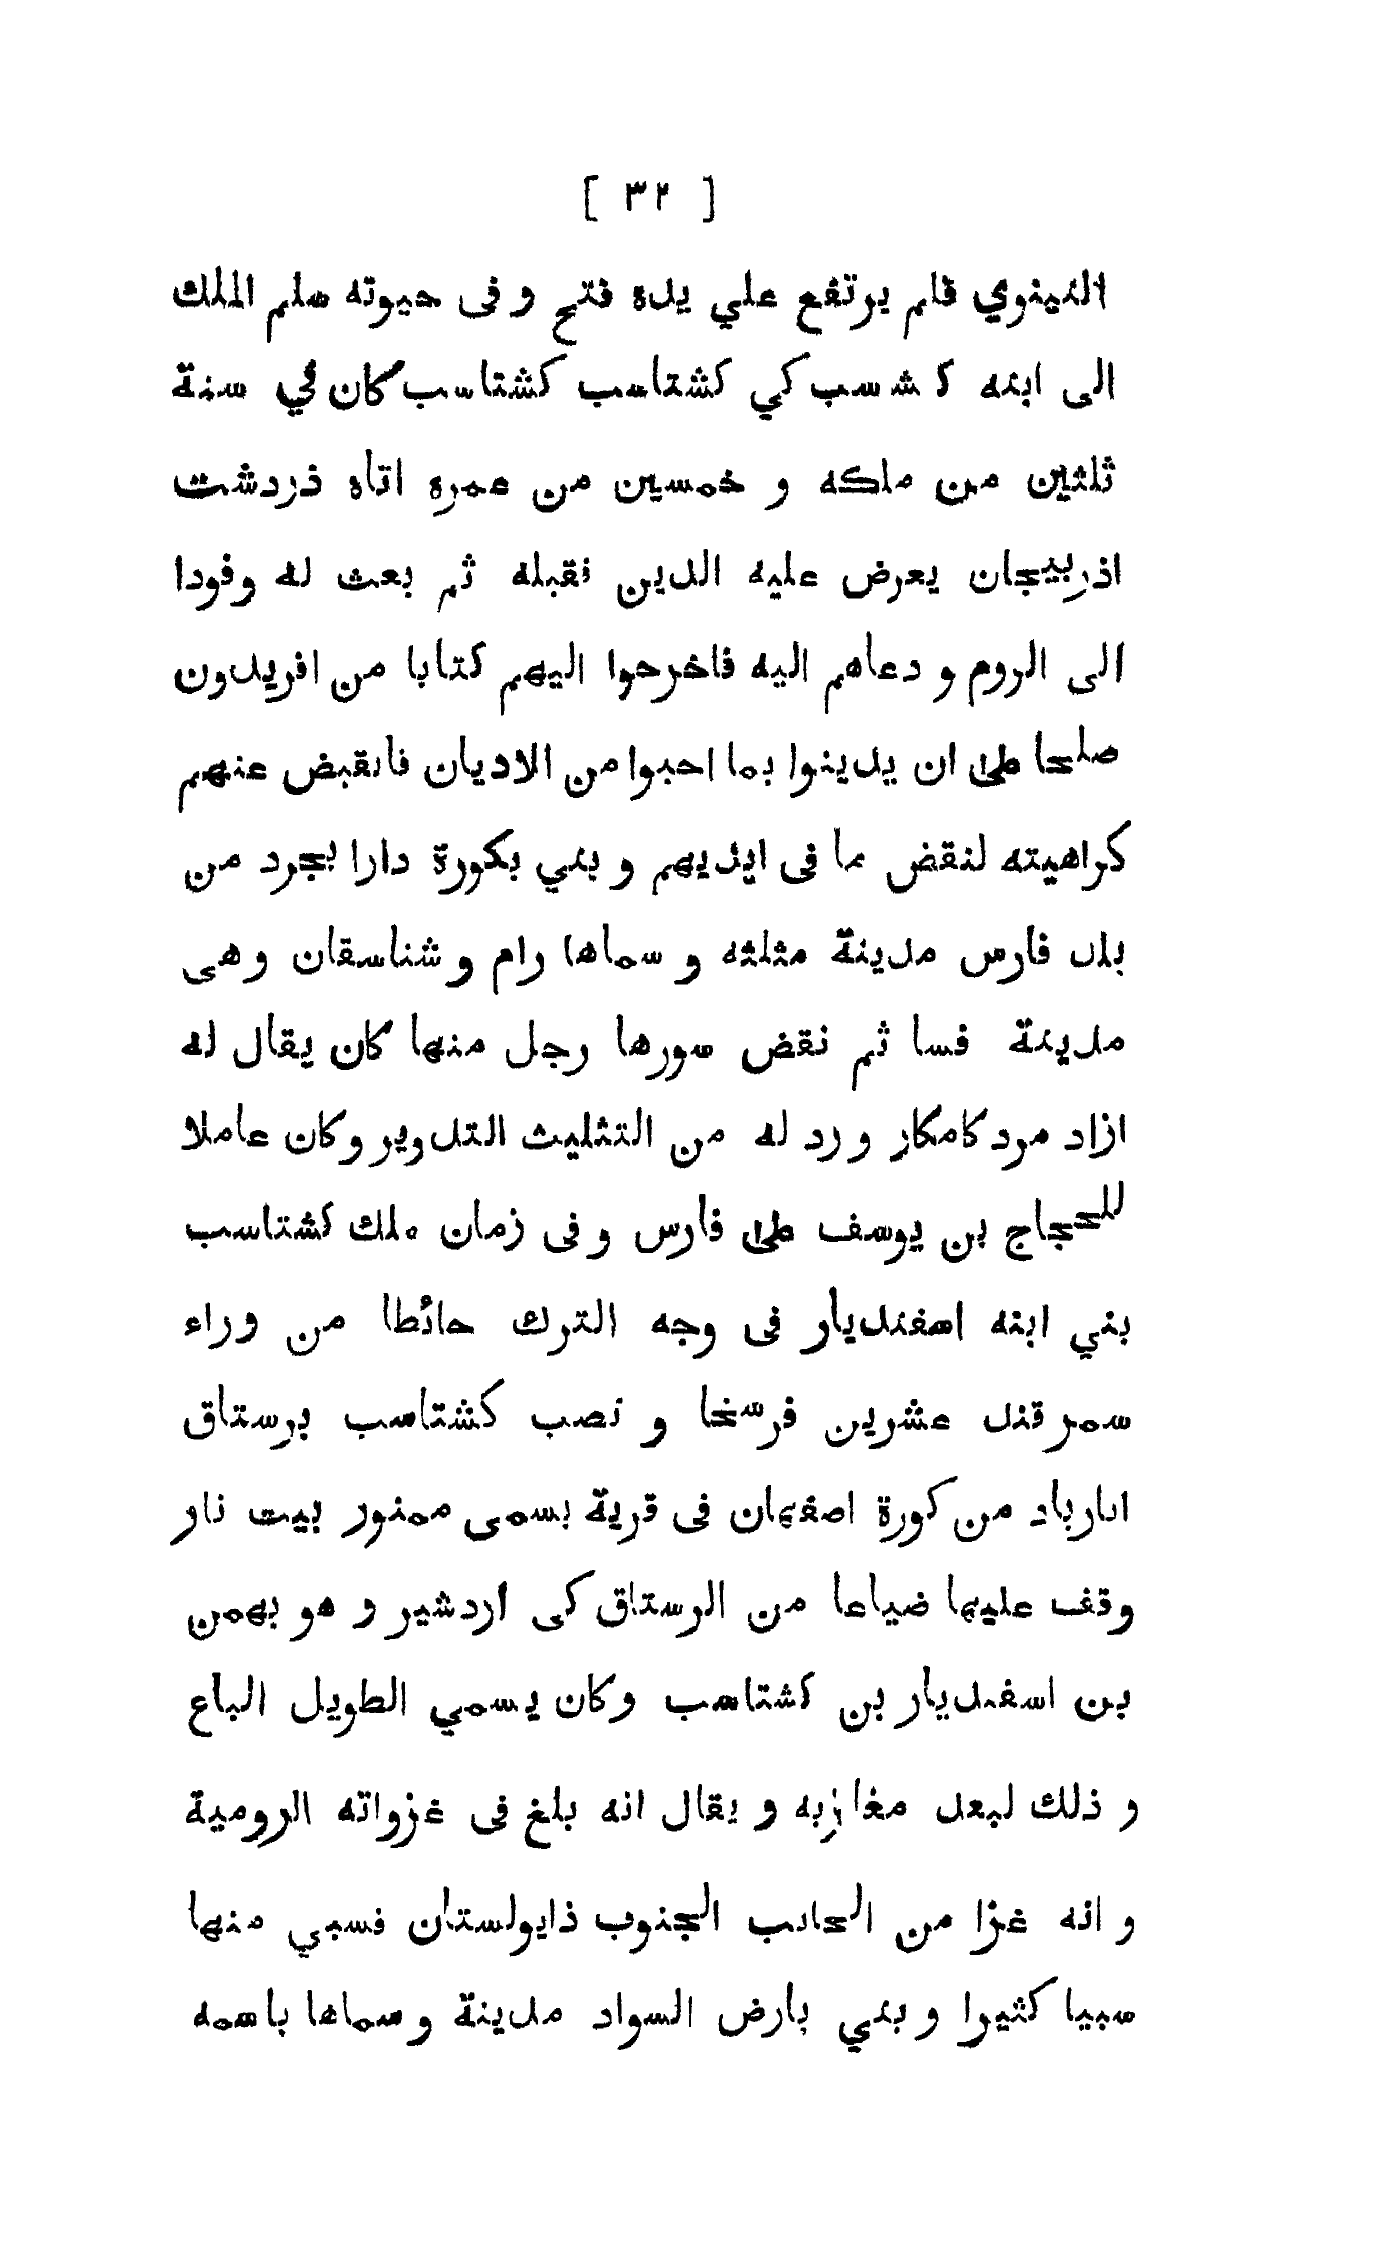 [ ٣٢ ]
النينوي فلم يرتفع علي يده فتح و في حيوته سلم الملك
الى ابنه كشسب كي كشتاسب كشتاسب كان في سنة
ثلثين من ملكه و خمسين من عمره اتاه ذردشت
اذربيجان يعرض عليه الدين نقبله ثم بعث له وفودا
الى الروم و دعاهم اليه فاخرحوا اليهم كتابا من افريدون
صلحا على ان يدينوا بما احبوا من الاديان فانقبض عنهم
كراهيته لنقض ما فى ايديهم و بني بكورة دارا بجرد من
بلد فارس مدينة مثلثه و سماها رام وشناسقان وهى
مدينة فسا ثم نقض سورها رجل منها كان يقال له
ازاد مرد كامكار و رد له من التثليث التدوير وكان عاملا
للحجاج بن يوسف على فارس و فى زمان ملك كشتاسب
بني ابنه اسفنديار فى وجه الترك حائطا من وراء
سمرقند عشرين فرسخا و نصب كشتاسب برستاق
انارباد من كورة اصفهان فى قرية بسمى ممنور بيت نار
وقف عليها ضياعا من الرستاق كى اردشير و هو بهمن
بن اسفنديار بن كشتاسب وكان يسمي الطويل الباع
و ذلك لبعد مغازيه و يقال انه بلغ فى غزواته الرومية
و انه غزا من الحانب الجنوب ذايولستان فسبي منها
سبيا كثيرا و بني بارض السواد مدينة و سماها باسمه